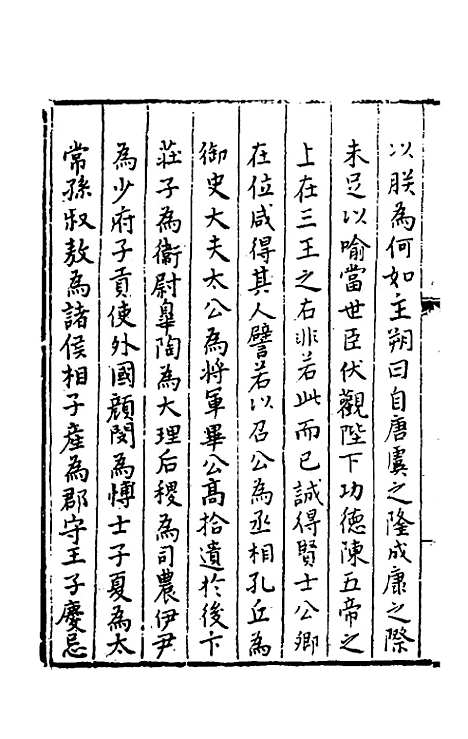 以朕為何如主朔曰自唐虞之隆成康之際
未足以喻當世臣伏觀陛下功德陳五帝之
上在三王之右非若此而已誠得賢士公卿
在位咸得其人譬若以召公為丞相孔丘為
御史大夫太公為將軍畢公髙拾遺於後卞
莊子為衛尉臯陶為大理后稷為司農伊尹
為少府子貢使外國顔閔為愽士子夏為太
常孫叔敖為諸侯相子產為郡守王子慶忌